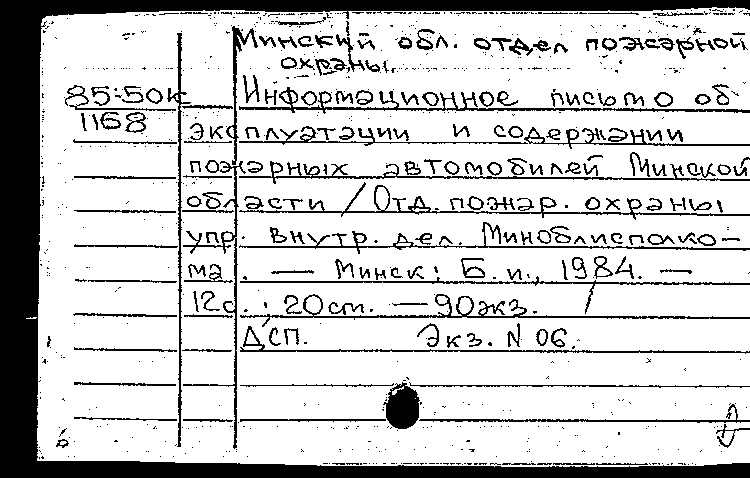 Минский обл. отдел пожарной
охраны.
85-50к Информационное письмо об
1168 эксплуатации и содержании
пожарных автомобилей Минской
области / Отд. пожар. охраны
упр. внутр. дел. Миноблисполко-
ма. — Минск: Б. и., 1984. —
12с.; 20см. — 90экз.
ДСП. Экз. N 06.